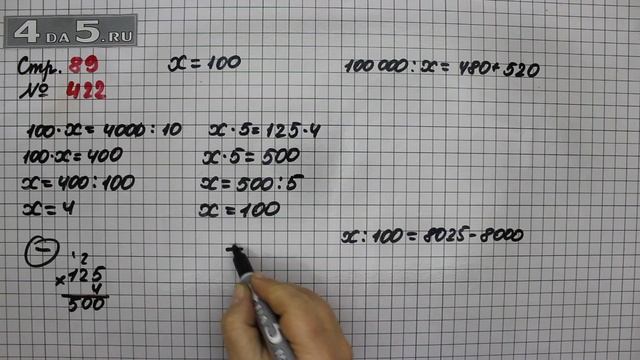 4 DA 5.RU
Стр. 89
№ 422
x = 100
100 000 : x = 480 + 520
100 · x = 4000 : 10
100 · x = 400
x = 400 : 100
x = 4
x · 5 = 125 · 4
x · 5 = 500
x = 500 : 5
x = 100
x : 100 = 8025 - 8000
12
× 125
4
500